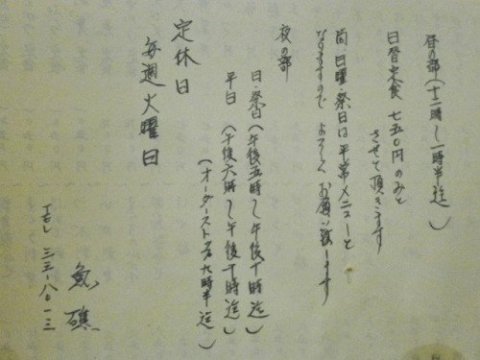 昼の部（十二時〜一時半迄）
日替定食 七五〇円のみと
させて頂きます
尚、日曜・祭日は平常メニューと
なりますので よろしくお願い致します
夜の部
日・祭日（午後五時〜午後十時迄）
平日（午後六時〜午後十時迄）
（オーダーストップ九時半迄）
定休日
毎週火曜日
魚礁
TEL 三三-八〇一三